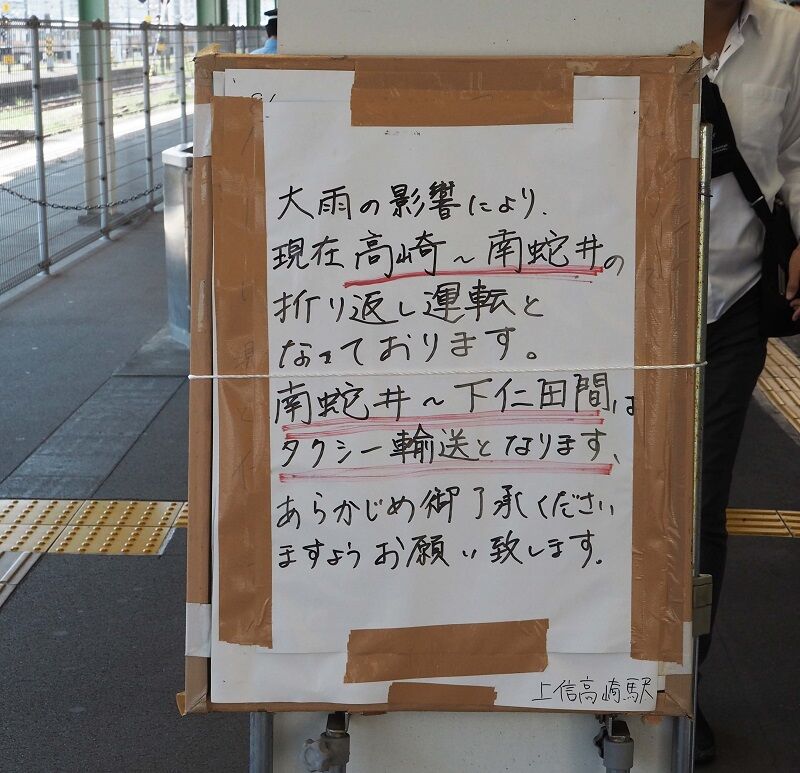 大雨の影響により、
現在高崎～南蛇井の
折り返し運転と
なっております。
南蛇井～下仁田間は
タクシー輸送となります、
あらかじめ御了承ください
ますようお願い致します。
上信高崎駅